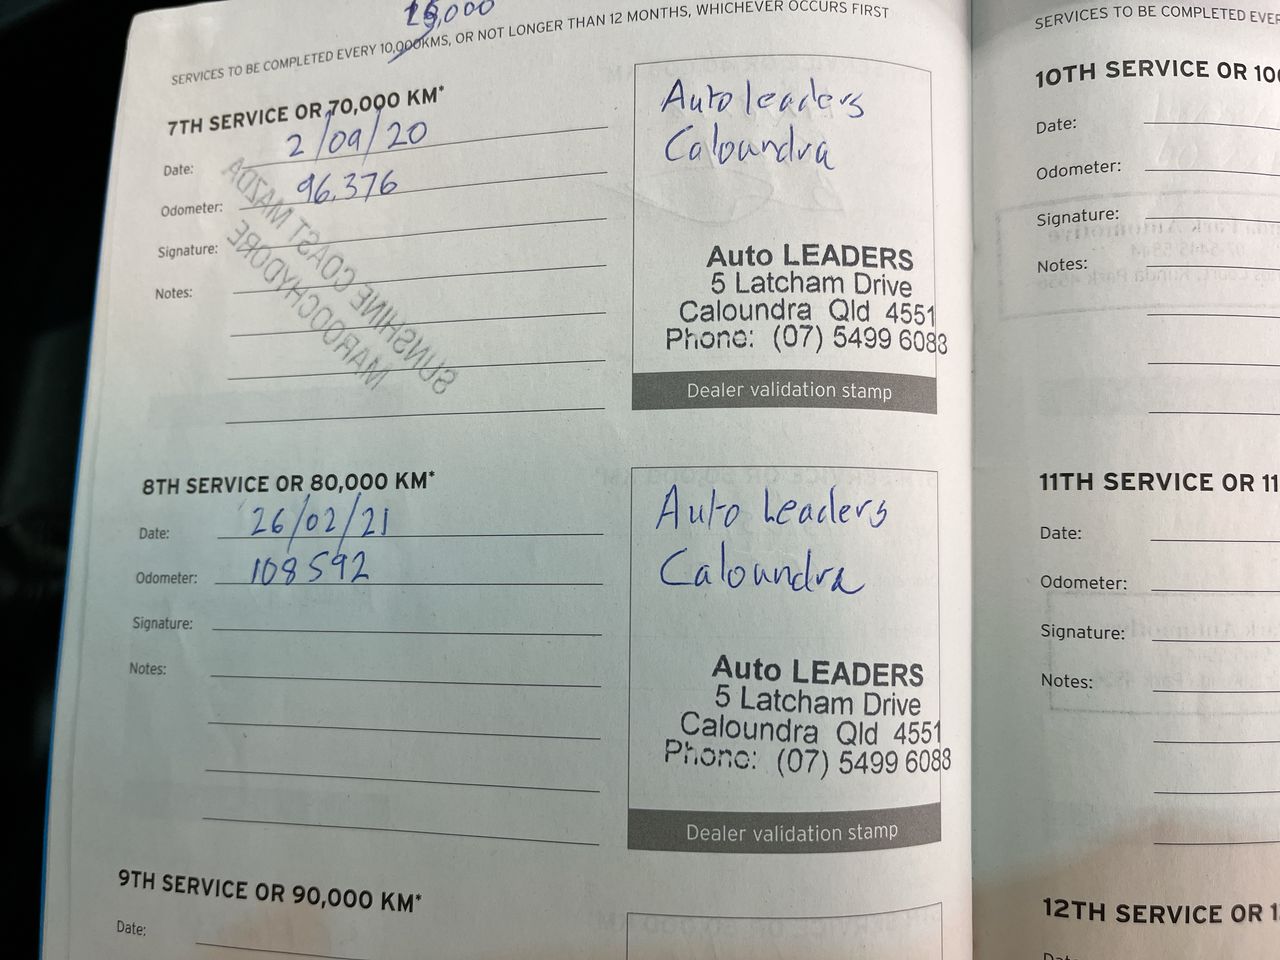 15,000
SERVICES TO BE COMPLETED EVERY 10,000KMS, OR NOT LONGER THAN 12 MONTHS, WHICHEVER OCCURS FIRST
7TH SERVICE OR 70,000 KM*
Date: 2/09/20
Odometer: 96,376
Signature:
Notes:
SUNSHINE COAST MAZDA
MAROOCHYDORE
Autoleaders
Caloundra
Auto LEADERS
5 Latcham Drive
Caloundra Qld 4551
Phone: (07) 5499 6088
Dealer validation stamp
8TH SERVICE OR 80,000 KM*
Date: 26/02/21
Odometer: 108592
Signature:
Notes:
Auto Leaders
Caloundra
Auto LEADERS
5 Latcham Drive
Caloundra Qld 4551
Phone: (07) 5499 6088
Dealer validation stamp
9TH SERVICE OR 90,000 KM*
Date:
SERVICES TO BE COMPLETED
10TH SERVICE OR
Date:
Odometer:
Signature:
Notes:
11TH SERVICE OR
Date:
Odometer:
Signature:
Notes:
12TH SERVICE OR